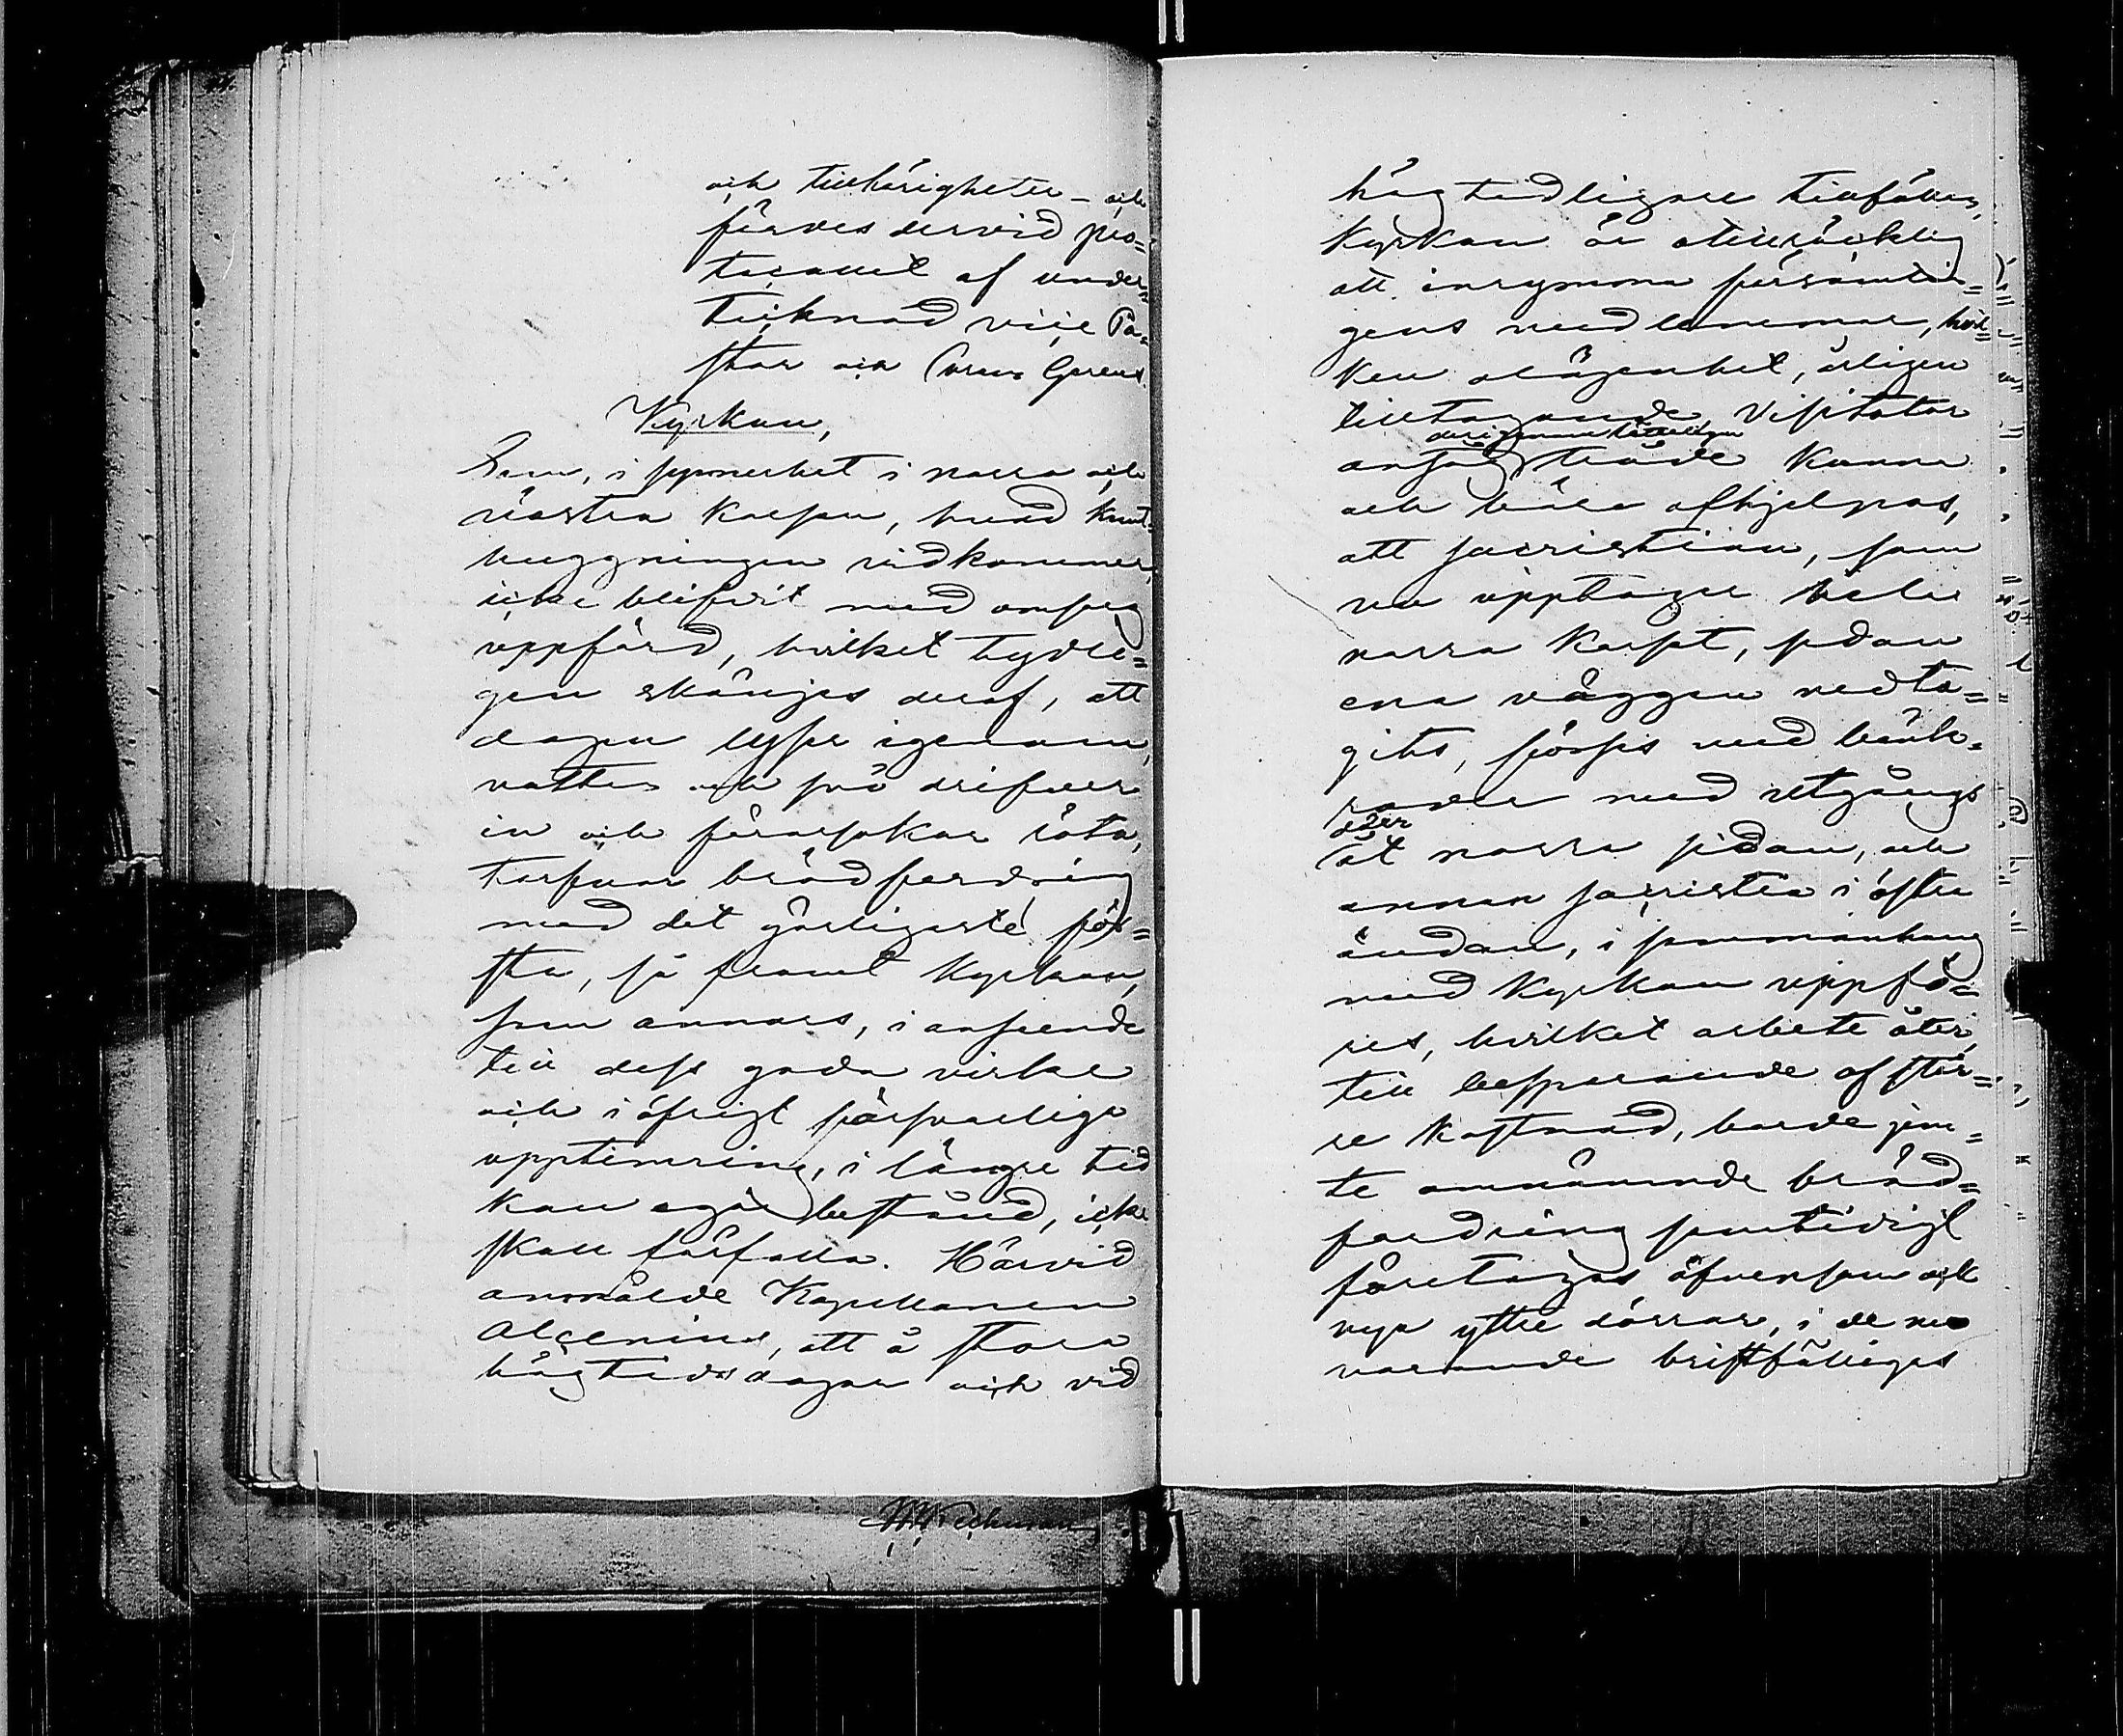 och tillhörigheter – och
fördes dervid pro-
tocollet af under-
tecknad vice Pa-
stor och Curam Gerens
Kyrkan,
Som, i synnerhet i norra och
västra korsen, hvad knut-
huggningen vidkommer,
icke blifvit med omsorg
uppförd, hvilket tydli-
gen skönjes deraf, att
dagen lyser igenom,
vatten och snö drifver
in och förorsakar röta,
tarfvar brädfordring
med det görligaste för-
sta, så framt kyrkan,
som annars, i anseende
till dess goda virke
och i öfrigt försvarliga
upptimring, i längre tid
kan ega bestånd, icke
skall förfalla. Härvid
anmälde Kapellanen
Alcenius, att å stora
högtidsdagar och vid
högtidligare tillfällen,
kyrkan är otillräcklig
att inrymma församlin-
gens medlemmar, hvil-
ken olägenhet, årligen
tilltagande, Visitator
derigenom lätteligen
ansåg trodde kunna
och böra afhjelpas,
att sacristian, som
nu upptager hela
norra korset, sedan
ena väggen nedta-
gits, förses med bänk-
rader med utgångs
dörr
åt norra sidan, och
annan sacristia i östra
ändan, i sammanhang
med kyrkan uppfö-
res, hvilket arbete åter,
till besparande af stör-
re kostnad, borde jem-
te omnämnde bräd-
fordring samtidigt
företagas, äfvensom och
nya yttre dörrar, i de nu
varande bristfälligas